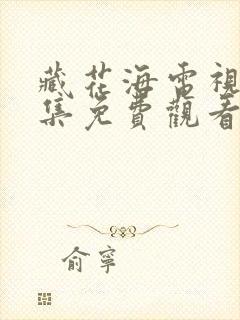 藏花海電視
集免費觀看
俞寧